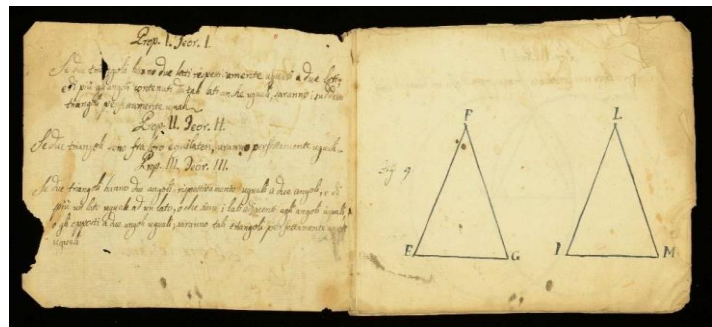 Prop. I. Teor. I.
Se due triangoli hanno due lati rispettivamente uguali a due lati,
e di più gl'angoli contenuti da tali lati anche uguali, saranno i suddetti
triangoli perfettamente uguali.
Prop. II. Teor. II.
Se due triangoli sono fra loro equilateri, saranno perfettamente uguali.
Prop. III. Teor. III.
Se due triangoli hanno due angoli rispettivamente uguali a due angoli, e di
più un lato uguale ad un lato, o che siano i lati adjacenti agli angoli uguali,
o gli opposti a due angoli uguali, saranno tali triangoli perfettamente
uguali
fig 9.
F
L
E
G
I
M